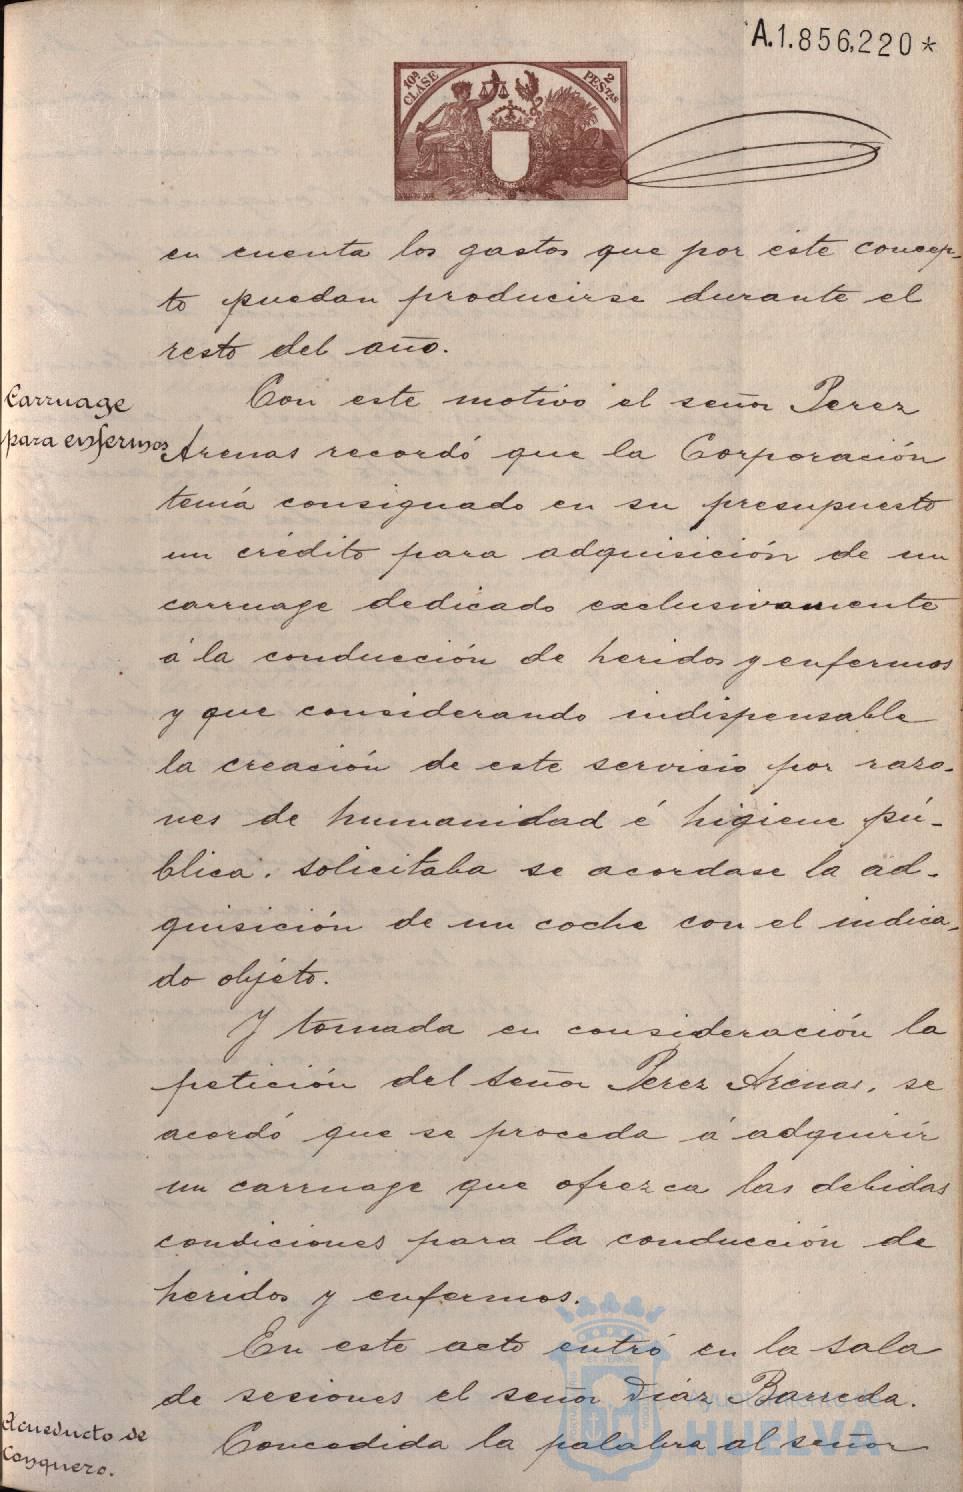 A.1.856,220*
10ª CLASE
2 PESTAS
en cuenta los gastos que por éste concep-
to puedan producirse durante el
resto del año.
Carruage
para enfermos
Con este motivo el señor Perez
Arenas recordó que la Corporación
tenía consignado en su presupuesto
un crédito para adquisición de un
carruage dedicado exclusivamente
á la conducción de heridos y enfermos
y que considerando indispensable
la creación de este servicio por razo-
nes de humanidad é higiene pú-
blica. solicitaba se acordase la ad-
quisición de un coche con el indica-
do objéto.
Y tomada en consideración la
petición del señor Perez Arenas, se
acordó que se proceda á adquirir
un carruage que ofrezca las debidas
condiciones para la conducción de
heridos y enfermos.
En este acto entró en la sala
de sesiones el señor Díaz Barreda.
Acueducto de
Conquero.
Concedida la palabra al señor
HUELVA